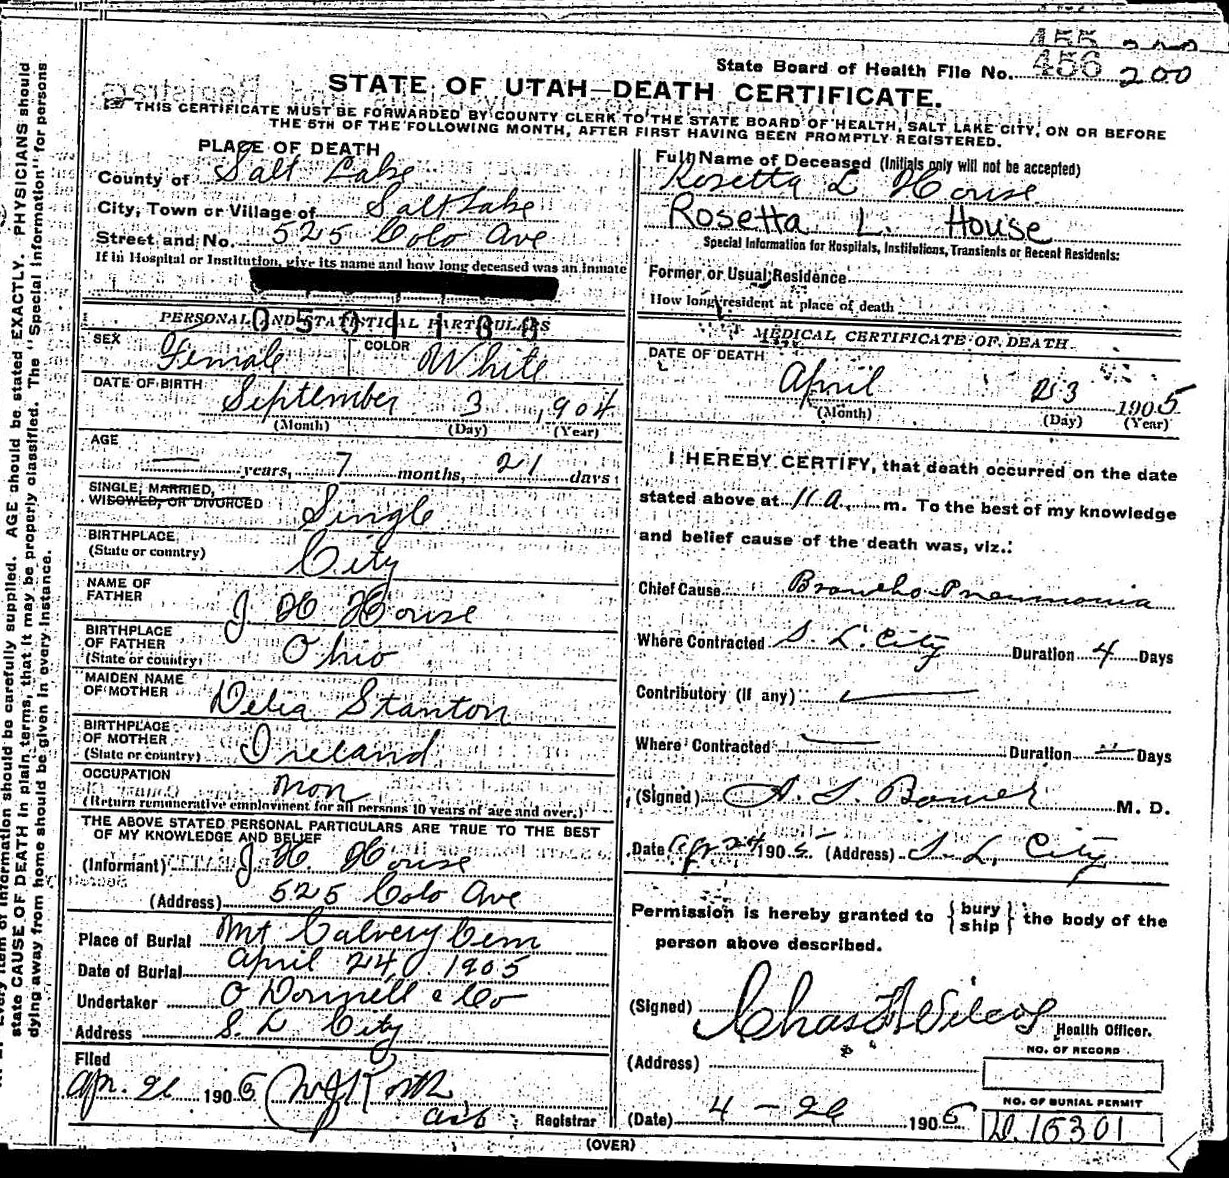 455 200
State Board of Health File No. 456 200
STATE OF UTAH—DEATH CERTIFICATE.
THIS CERTIFICATE MUST BE FORWARDED BY COUNTY CLERK TO THE STATE BOARD OF HEALTH, SALT LAKE CITY, ON OR BEFORE
THE 5TH OF THE FOLLOWING MONTH, AFTER FIRST HAVING BEEN PROMPTLY REGISTERED.
PLACE OF DEATH
County of Salt Lake
City, Town or Village of Salt Lake
Street and No. 525 Colo Ave
If in Hospital or Institution, give its name and how long deceased was an inmate
0501100
PERSONAL AND STATISTICAL PARTICULARS
SEX Female COLOR White
DATE OF BIRTH September 3 1904
(Month) (Day) (Year)
AGE
— years, 7 months, 21 days
SINGLE, MARRIED,
WIDOWED, OR DIVORCED Single
BIRTHPLACE
(State or country) City
NAME OF
FATHER J H House
BIRTHPLACE
OF FATHER
(State or country) Ohio
MAIDEN NAME
OF MOTHER Delia Stanton
BIRTHPLACE
OF MOTHER
(State or country) Ireland
OCCUPATION non
(Return remunerative employment for all persons 10 years of age and over.)
THE ABOVE STATED PERSONAL PARTICULARS ARE TRUE TO THE BEST
OF MY KNOWLEDGE AND BELIEF
(Informant) J. H. House
(Address) 525 Colo Ave
Place of Burial Mt Calvery Cem
Date of Burial April 24 1905
Undertaker O Donnell & Co
Address S. L City
Filed
Apr. 26 1905
Registrar
Full Name of Deceased (Initials only will not be accepted)
Rosetta L House
Rosetta L. House
Special Information for Hospitals, Institutions, Transients or Recent Residents:
Former or Usual Residence
How long resident at place of death
MEDICAL CERTIFICATE OF DEATH
DATE OF DEATH
April 23 1905
(Month) (Day) (Year)
I HEREBY CERTIFY, that death occurred on the date
stated above at 11 a. m. To the best of my knowledge
and belief cause of the death was, viz.:
Chief Cause Broncho-Pneumonia
Where Contracted S. L. City Duration 4 Days
Contributory (if any)
Where Contracted — Duration " Days
(Signed) A. S. Bower M. D.
Date Apr 24 1905 (Address) S. L. City
Permission is hereby granted to { bury
ship } the body of the
person above described.
(Signed) Chas F Wilcox
Health Officer.
(Address)
NO. OF RECORD
NO. OF BURIAL PERMIT
(Date) 4 - 26 1905 D. 15301
(OVER)
Every item of information should be carefully supplied. AGE should be stated EXACTLY. PHYSICIANS should
state CAUSE OF DEATH in plain terms, that it may be properly classified. The "Special Information" for persons
dying away from home should be given in every instance.